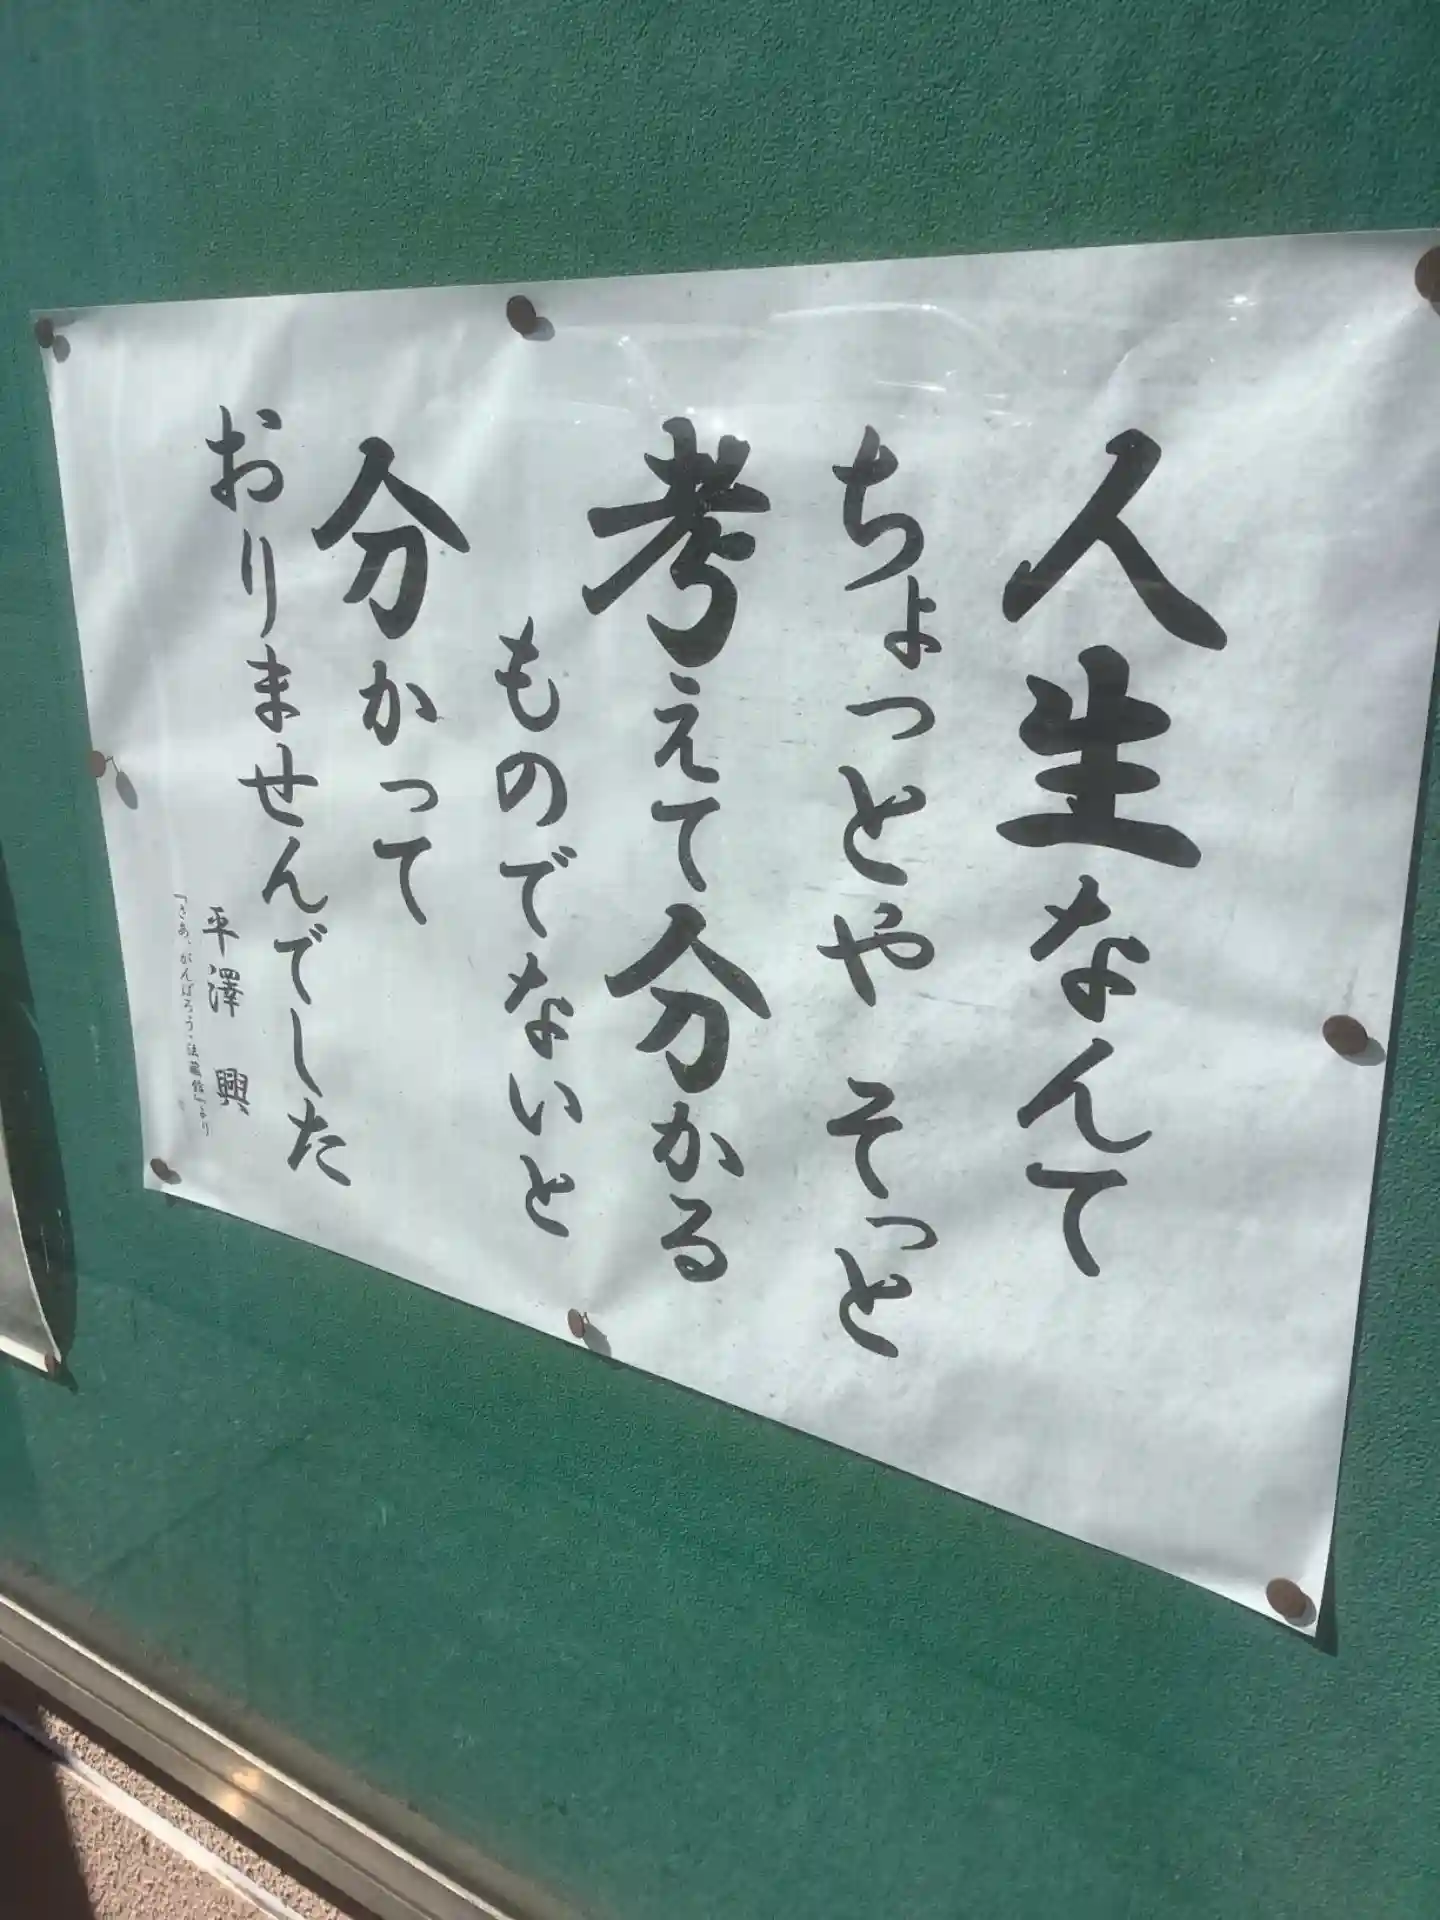 人生なんて
ちょっとや そっと
考えて分かる
ものでないと
分かって
おりませんでした
平澤 興
「さあ、がんばろう・法蔵館」より